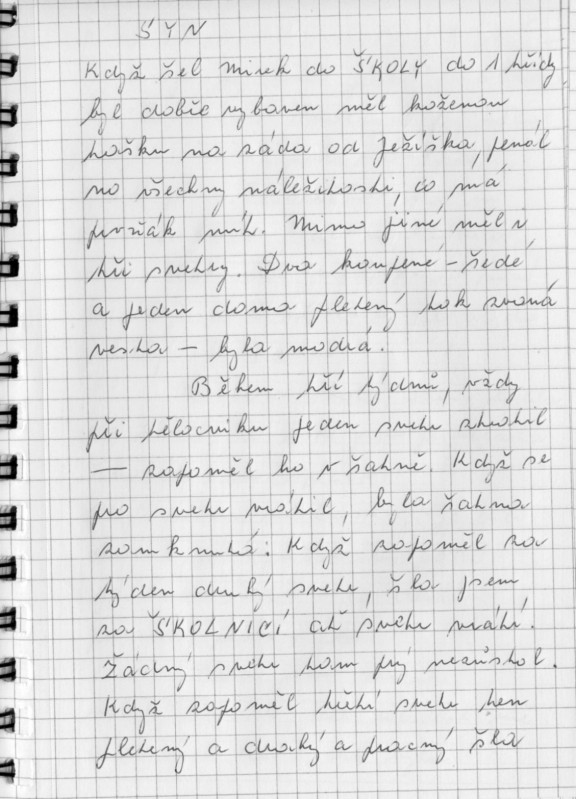 SYN
Když šel Mirek do ŠKOLY do 1 třídy
byl dobře vybaven měl koženou
tašku na záda od Ježíška, penál
na všechny náležitosti, co má
prvňák mít. Mimo jiné měl i
tři svetry. Dva koupené – šedé
a jeden doma pletený tak zvaná
vesta – byla modrá.
Během tří týdnů, vždy
při tělocviku jeden svetr ztratil
— zapoměl ho v šatně. Když se
pro svetr vrátil, byla šatna
zamknutá. Když zapoměl za
týden druhý svetr, šla jsem
za ŠKOLNICÍ ať svetr vrátí.
Žádný svetr tam prý nezůstal.
Když zapoměl třetí svetr ten
pletený a drahý a pracný šla